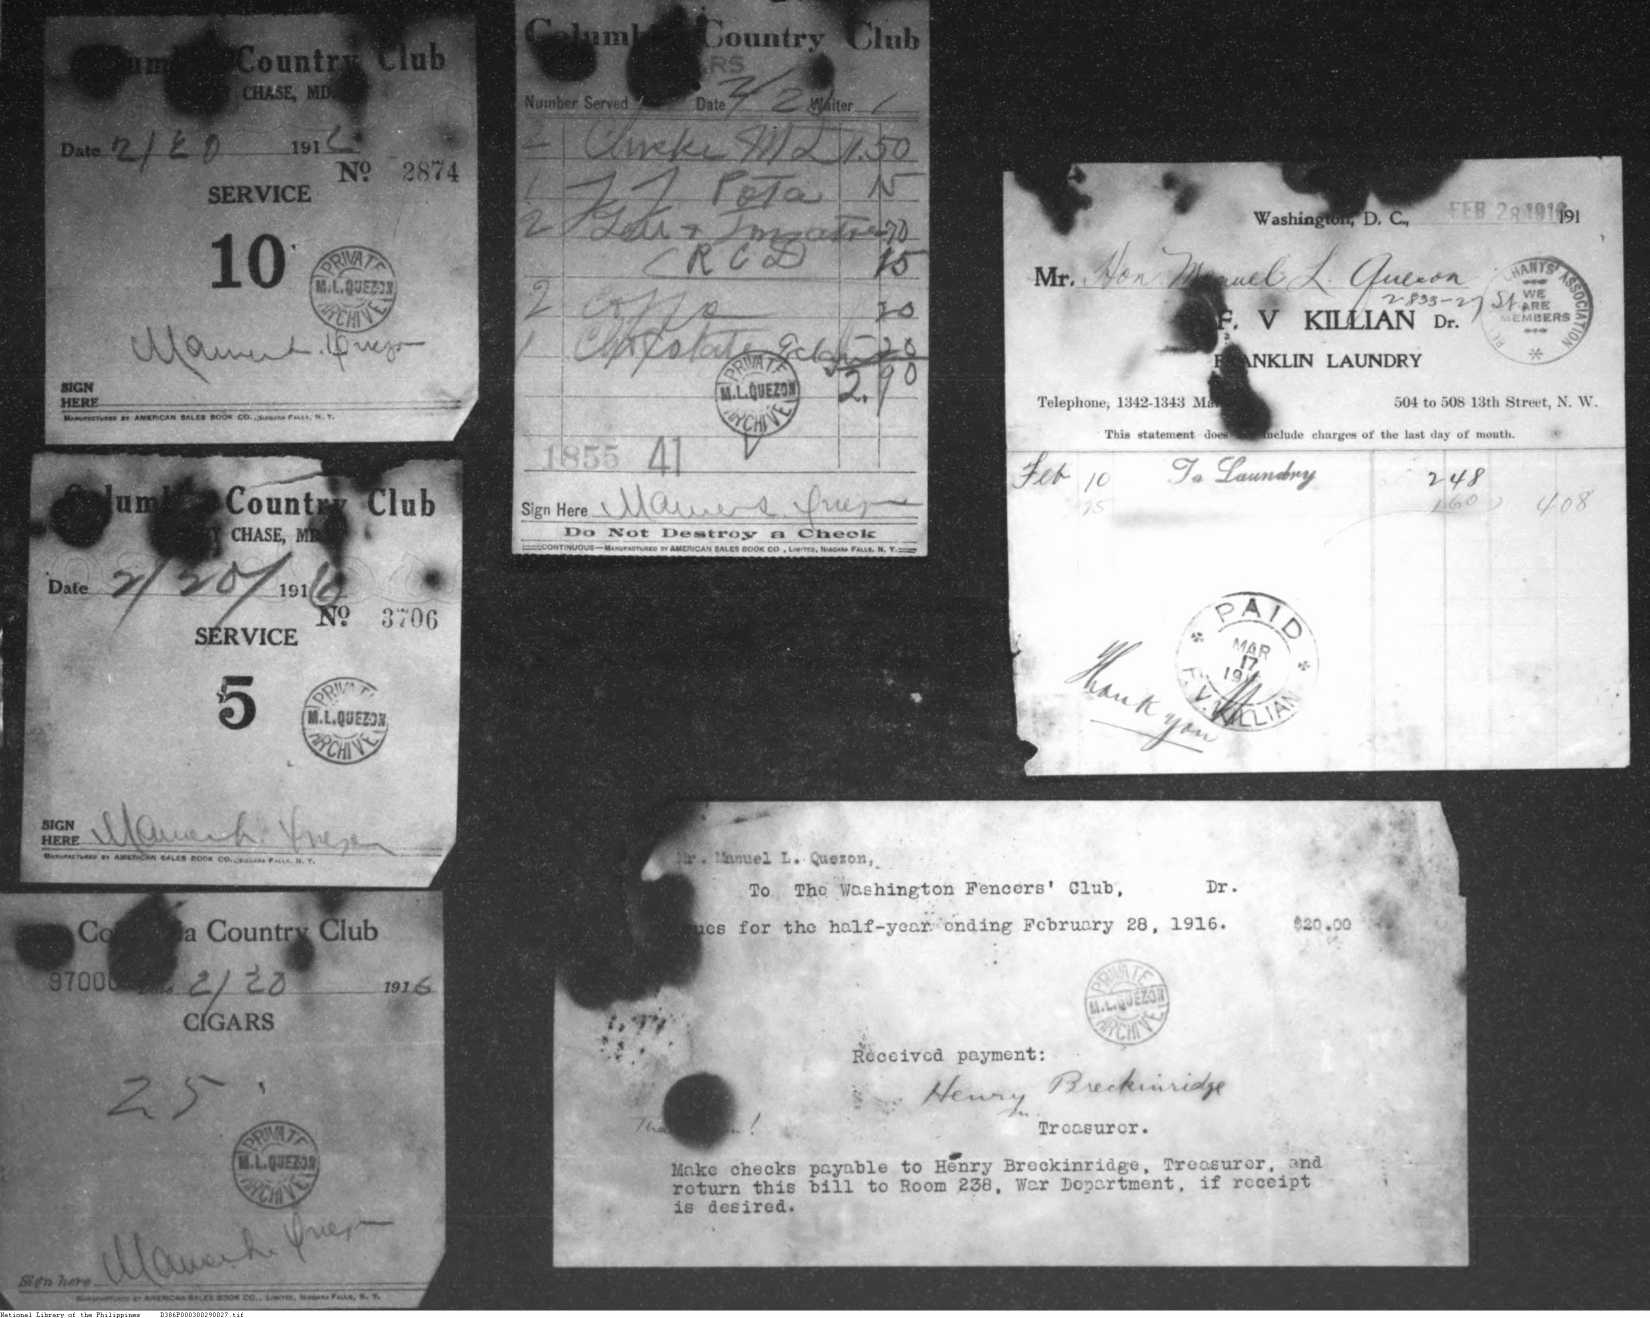 Country Club
CHASE, MD.
Date 2/20 1916
No 2874
SERVICE
10
PRIVATE
M.L.QUEZON
ARCHIVE
Manuel L. Quezon
SIGN
HERE
MANUFACTURED BY AMERICAN SALES BOOK CO., NIAGARA FALLS, N. Y.
Country Club
CHASE, MD.
Date 2/20/ 1916
No 3706
SERVICE
5
PRIVATE
M.L.QUEZON
ARCHIVE
SIGN
HERE Manuel L. Quezon
MANUFACTURED BY AMERICAN SALES BOOK CO., NIAGARA FALLS, N. Y.
Country Club
97000 2/20 1916
CIGARS
25
PRIVATE
M.L.QUEZON
ARCHIVE
Manuel L. Quezon
Sign here
MANUFACTURED BY AMERICAN SALES BOOK CO., LIMITED, NIAGARA FALLS, N. Y.
Columbia Country Club
Number Served Date 2/2 Waiter 1
2 1.50
1 Pota 15
2 70
15
2 20
1 20
2.90
PRIVATE
M.L.QUEZON
ARCHIVE
1855 41
Sign Here Manuel L. Quezon
Do Not Destroy a Check
CONTINUOUS—MANUFACTURED BY AMERICAN SALES BOOK CO., LIMITED, NIAGARA FALLS, N. Y.
Washington, D. C., FEB 28 1916 191
Mr. Hon Manuel L. Quezon
2833-27 St
WE
ARE
MEMBERS
ASSOCIATION
F. V KILLIAN Dr.
FRANKLIN LAUNDRY
Telephone, 1342-1343 504 to 508 13th Street, N. W.
This statement does include charges of the last day of month.
Feb 10 To Laundry 2 48
25 1 60 4 08
PAID
MAR
17
F. V. KILLIAN
Thank you
Mr. Manuel L. Quezon,
To The Washington Fencers' Club, Dr.
for the half-year ending February 28, 1916. $20.00
PRIVATE
M.L.QUEZON
ARCHIVE
Received payment:
Henry Breckinridge
Treasurer.
Make checks payable to Henry Breckinridge, Treasurer, and
return this bill to Room 238, War Department, if receipt
is desired.
National Library of the Philippines D386P000300290027.tif